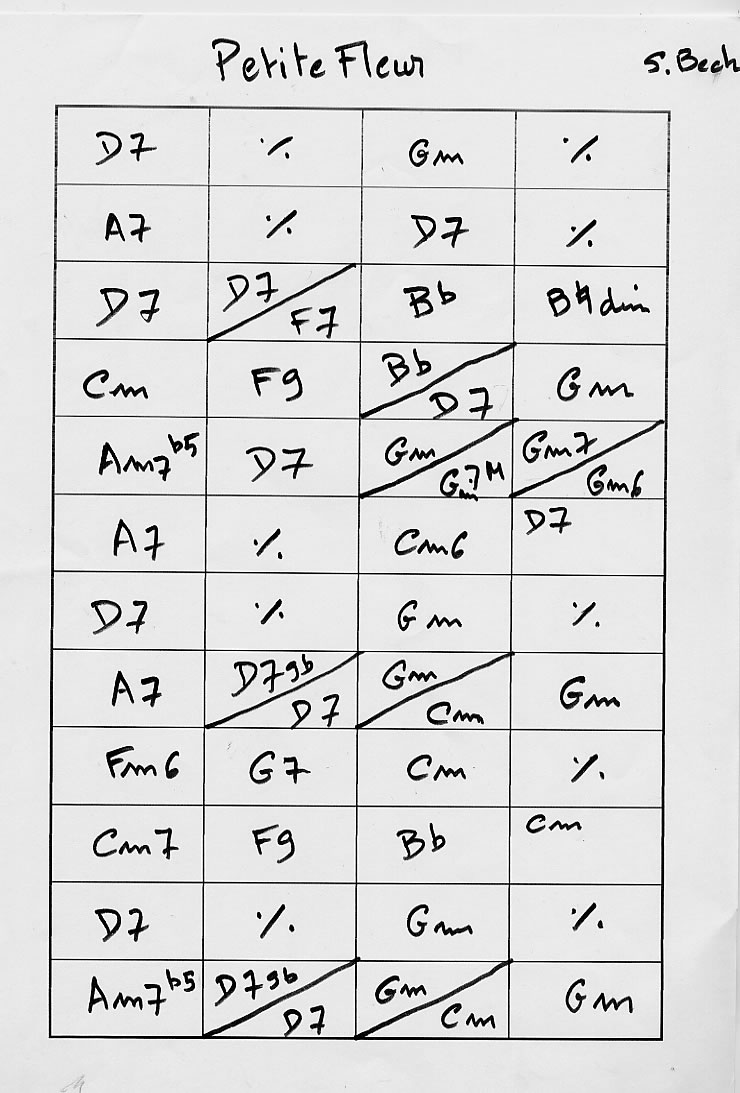 Petite Fleur S. Bech
D7 ٪ Gm ٪
A7 ٪ D7 ٪
D7 D7 / F7 Bb B♮dim
Cm F9 Bb / D7 Gm
Am7b5 D7 Gm / Gm7M Gm7 / Gm6
A7 ٪ Cm6 D7
D7 ٪ Gm ٪
A7 D79b / D7 Gm / Cm Gm
Fm6 G7 Cm ٪
Cm7 F9 Bb Cm
D7 ٪ Gm ٪
Am7b5 D79b / D7 Gm / Cm Gm